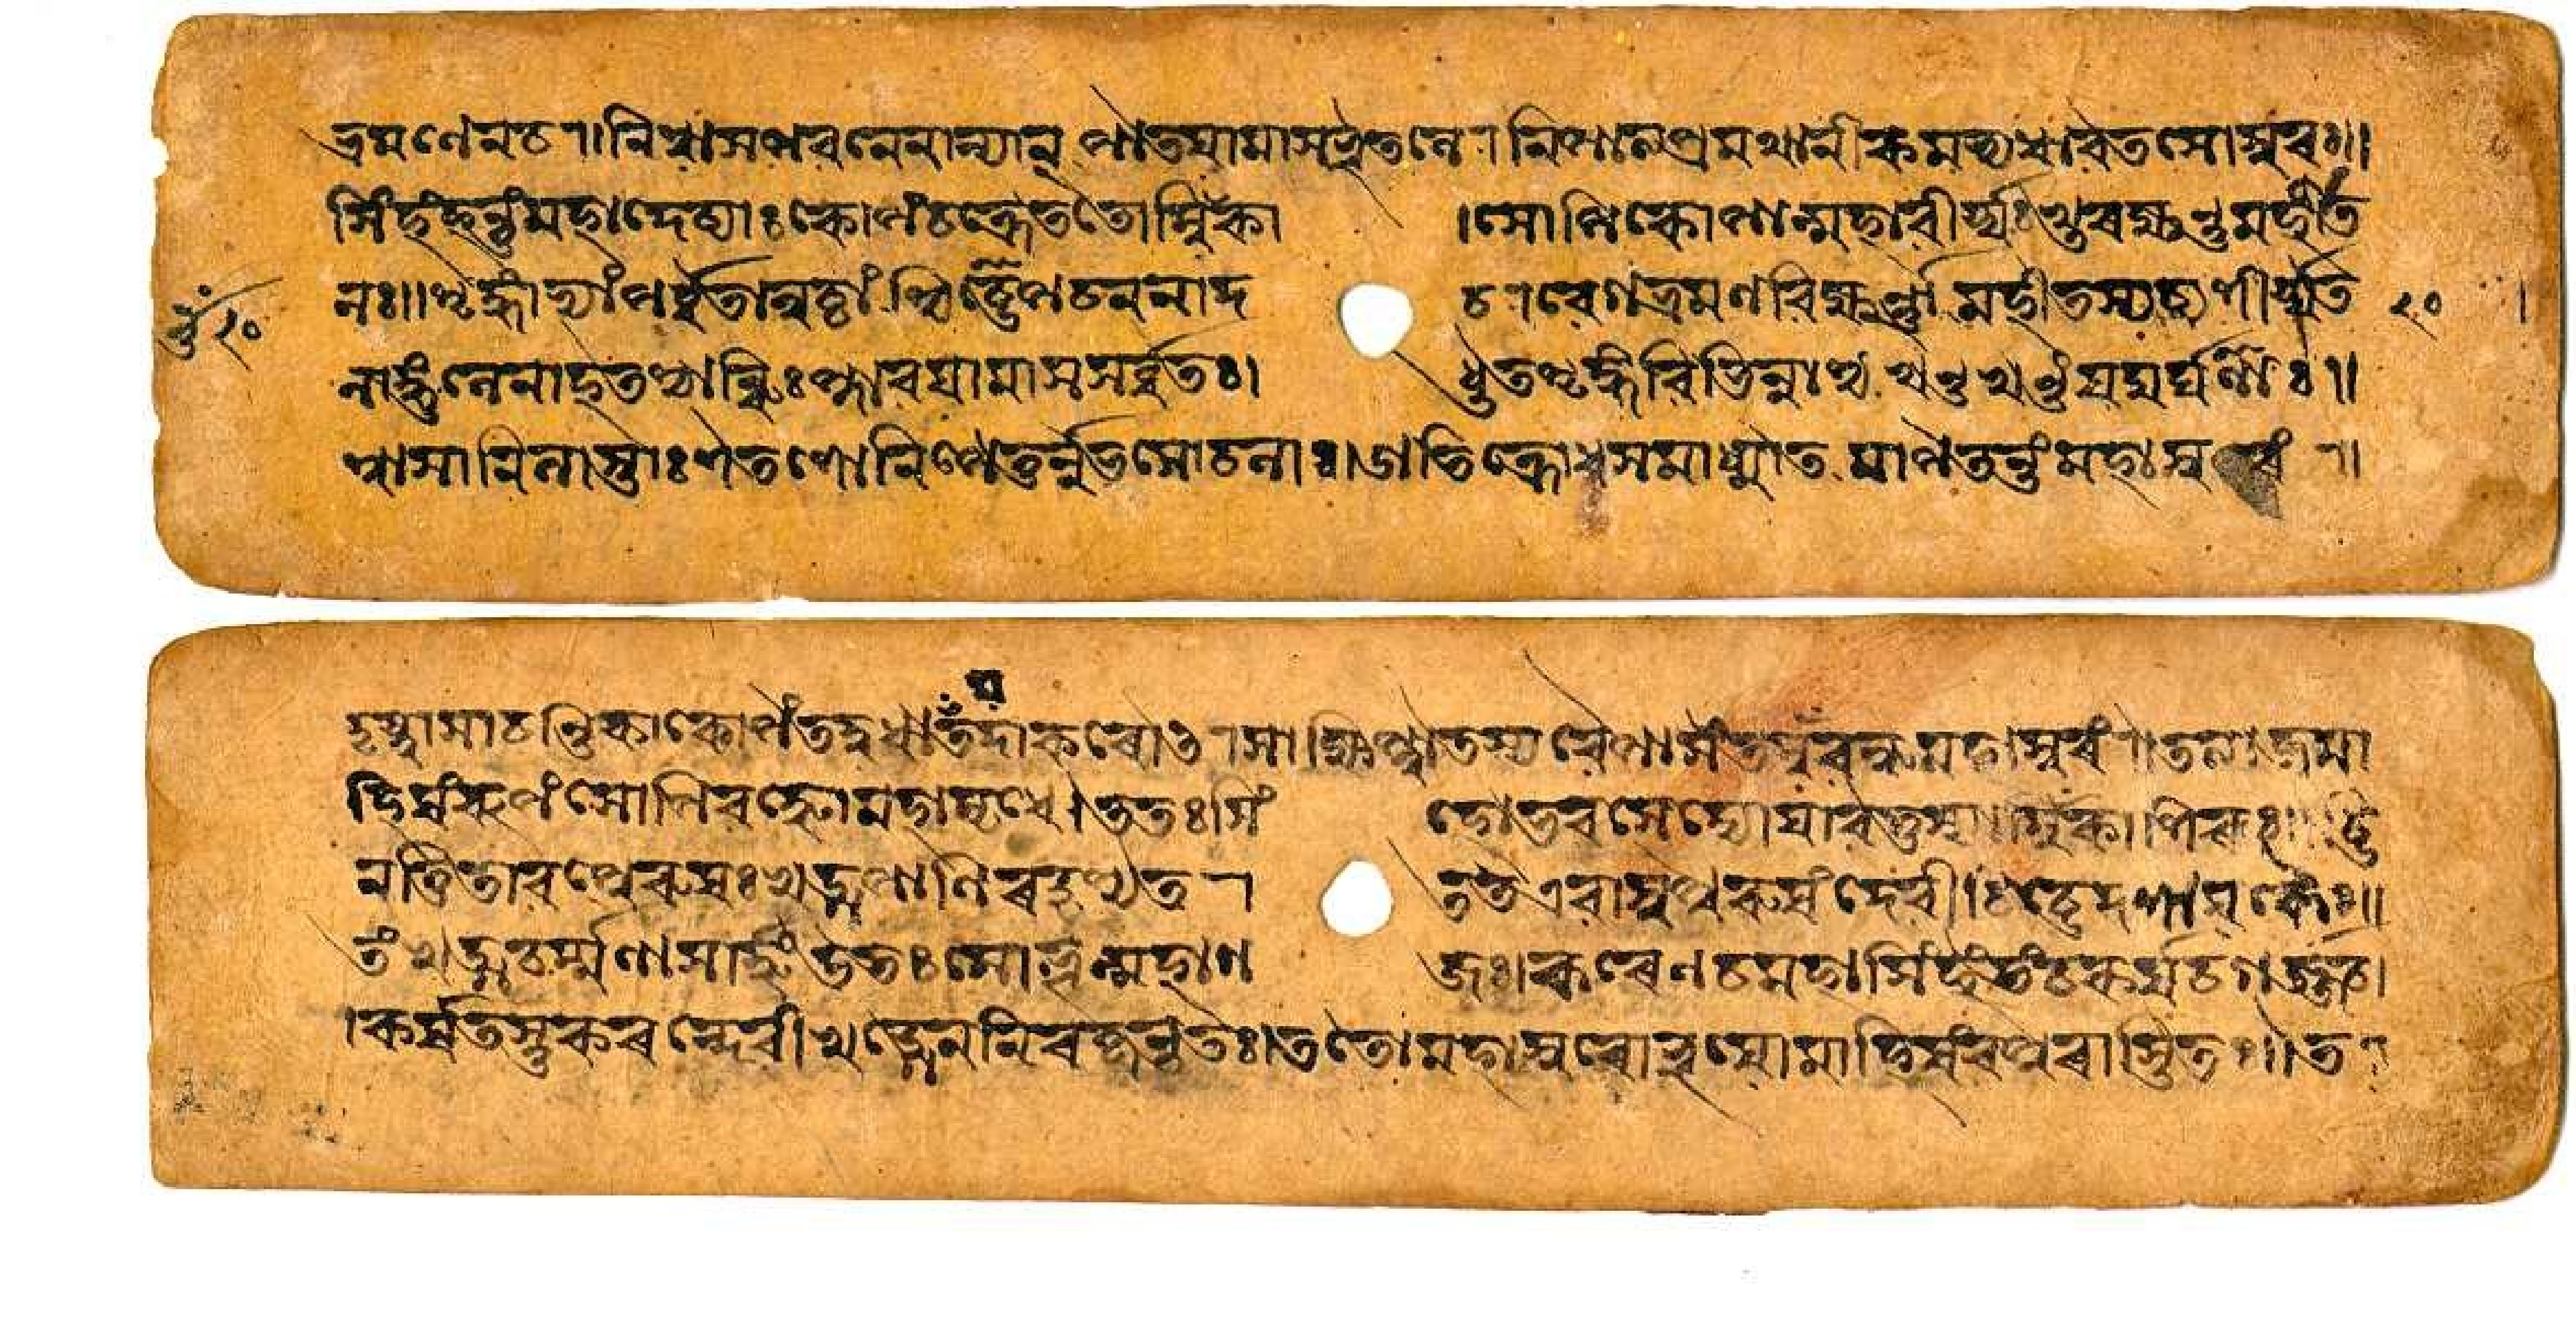 ভ্ৰমণেন চ ৲॥ নিশ্বাসপবনেনান্যান্ পাতয়ামাস ভূতলে ৲ নিপাত্য প্ৰমথানীকমভ্যধাবত সোসুৰঃ॥
সিংহং হন্তুং মহাদেব্যাঃ কোপং চক্ৰে ততোম্বিকা । সোপি কোপান্মহাবীৰ্য্যঃ খুৰক্ষুণ্ণমহীত
লঃ॥ শৃঙ্গাভ্যাং পৰ্ব্বতানুচ্চাংশ্চিক্ষেপ চ ননাদ চ ৲ বেগভ্ৰমণবিক্ষুণ্ণা মহী তস্য ব্যশীৰ্য্যত
২০
২০
লাঙ্গুলেনাহতশ্চাব্ধিঃ প্লাবয়ামাস সৰ্ব্বতঃ। ধুতশৃঙ্গবিভিন্নাশ্চ খণ্ডখণ্ডং যযুৰ্ঘনাঃ ৲॥
শ্বাসানিলাস্তাঃ শতশো নিপেতুৰ্ন্নভসোচলাঃ। ইতি ক্ৰোধসমাধ্মাতমাপতন্তং মহাসুৰং ৲॥
দৃষ্ট্বা সা চণ্ডিকা কোপং তদ্বধায় তদাকৰোৎ ৲ সা ক্ষিপ্ত্বা তস্য বৈ পাশং তং ববন্ধ মহাসুৰং ৲। তত্যাজ মা
হিষং ৰূপং সোপি বদ্ধো মহামৃধে। ততঃ সিংহোভবৎ সদ্যো যাবত্তস্যাম্বিকা শিৰঃ॥ ছি
নত্তি তাবৎ পুৰুষঃ খড্গপাণিৰদৃশ্যত ৲ তত এবাসু পুৰুষং দেবী চিচ্ছেদ শায়কৈঃ॥
তং খড্গচৰ্ম্মণা সাৰ্দ্ধং ততঃ সোভূন্মহাগজঃ। কৰেণ চ মহাসিংহং তং চকৰ্ষ চ গৰ্জ্জ চ।
। কৰ্ষতস্তু কৰন্দেবী খড্গেন নিৰকৃন্ততঃ। ততো মহাসুৰো ভূয়ো মাহিষং বপুৰাস্থিতঃ॥ ত ৲